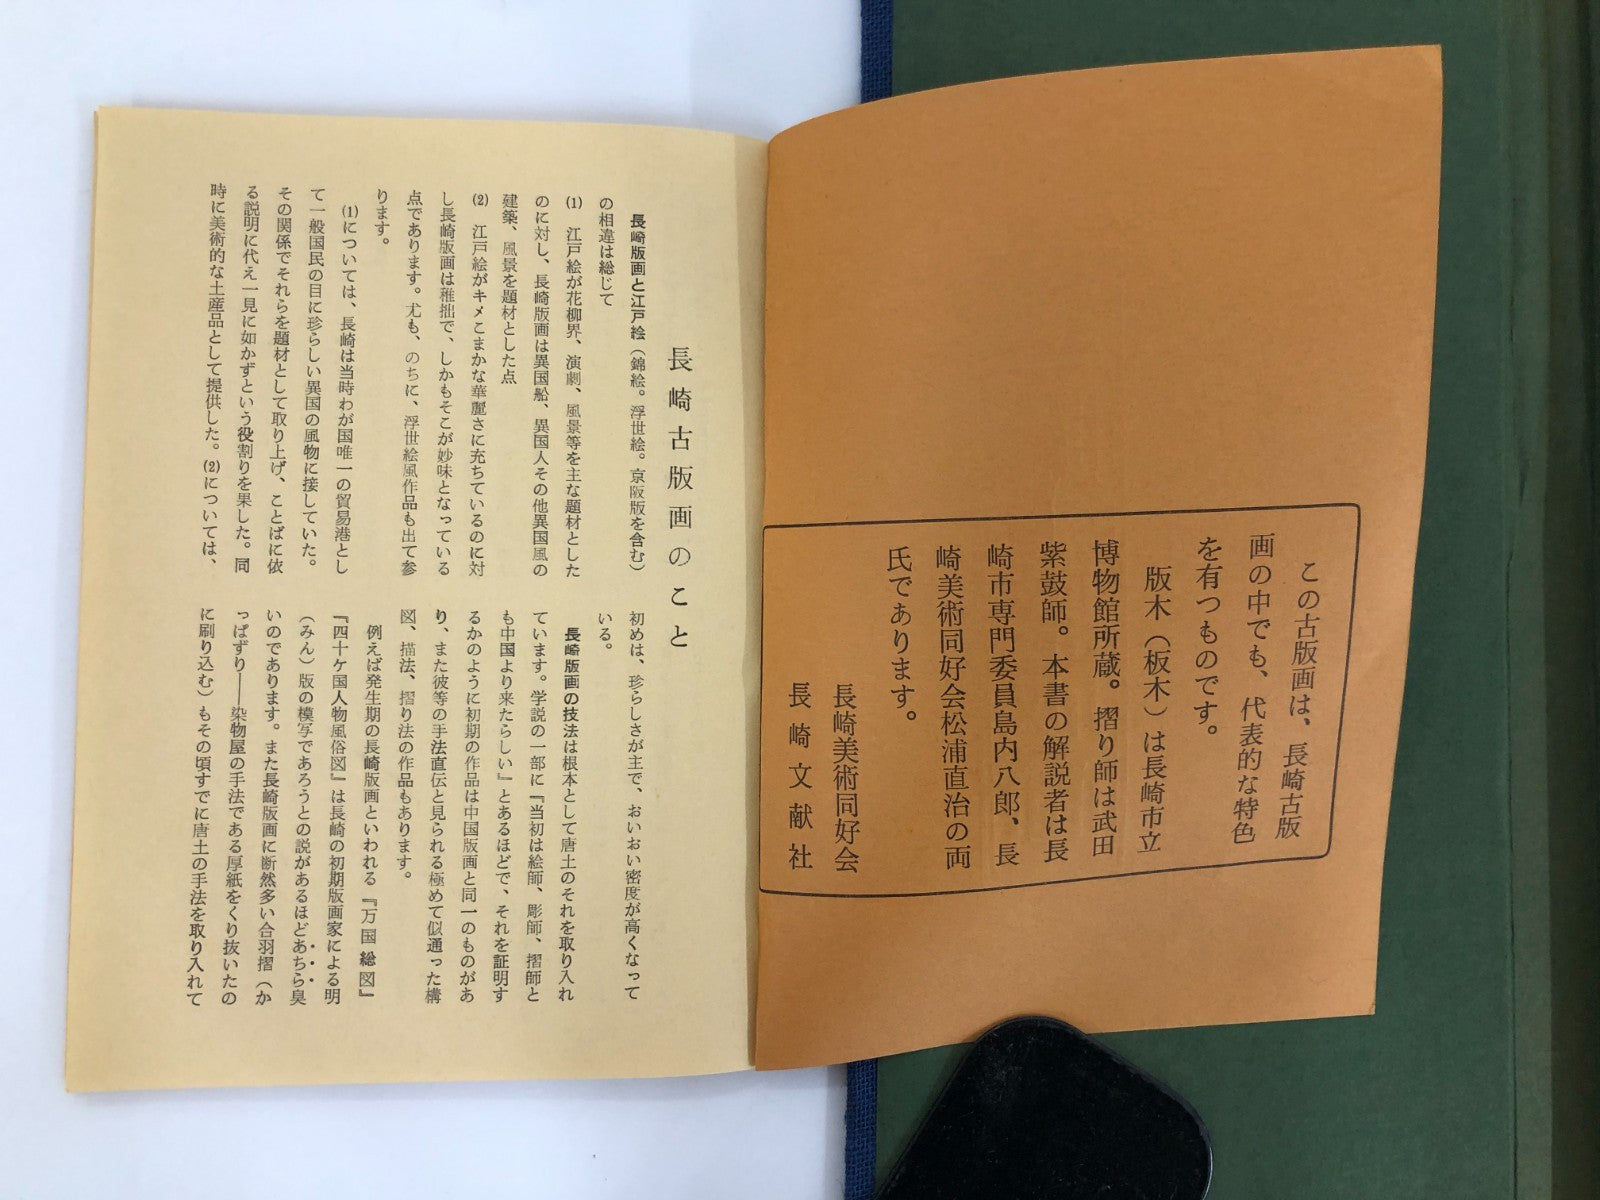 この古版画は、長崎古版
画の中でも、代表的な特色
を有つものです。
版木（板木）は長崎市立
博物館所蔵。摺り師は武田
紫鼓師。本書の解説者は長
崎市専門委員島内八郎、長
崎美術同好会松浦直治の両
氏であります。
長崎美術同好会
長崎文献社
長崎古版画のこと
長崎版画と江戸絵（錦絵。浮世絵。京阪版を含む）
の相違は総じて
(1) 江戸絵が花柳界、演劇、風景等を主な題材とした
のに対し、長崎版画は異国船、異国人その他異国風の
建築、風景を題材とした点
(2) 江戸絵がキメこまかな華麗さに充ちているのに対
し長崎版画は稚拙で、しかもそこが妙味となっている
点であります。尤も、のちに、浮世絵風作品も出て参
ります。
(1)については、長崎は当時わが国唯一の貿易港とし
て一般国民の目に珍らしい異国の風物に接していた。
その関係でそれらを題材として取り上げ、ことばに依
る説明に代え一見に如かずという役割りを果した。同
時に美術的な土産品として提供した。(2)については、
初めは、珍らしさが主で、おいおい密度が高くなって
いる。
長崎版画の技法は根本として唐土のそれを取り入れ
ています。学説の一部に『当初は絵師、彫師、摺師と
も中国より来たらしい』とあるほどで、それを証明す
るかのように初期の作品は中国版画と同一のものがあ
り、また彼等の手法直伝と見られる極めて似通った構
図、描法、摺り法の作品もあります。
例えば発生期の長崎版画といわれる『万国総図』
『四十ケ国人物風俗図』は長崎の初期版画家による明
（みん）版の模写であろうとの説があるほどあちら臭
いのであります。また長崎版画に断然多い合羽摺（か
っぱずり――染物屋の手法である厚紙をくり抜いたの
に刷り込む）もその頃すでに唐土の手法を取り入れて